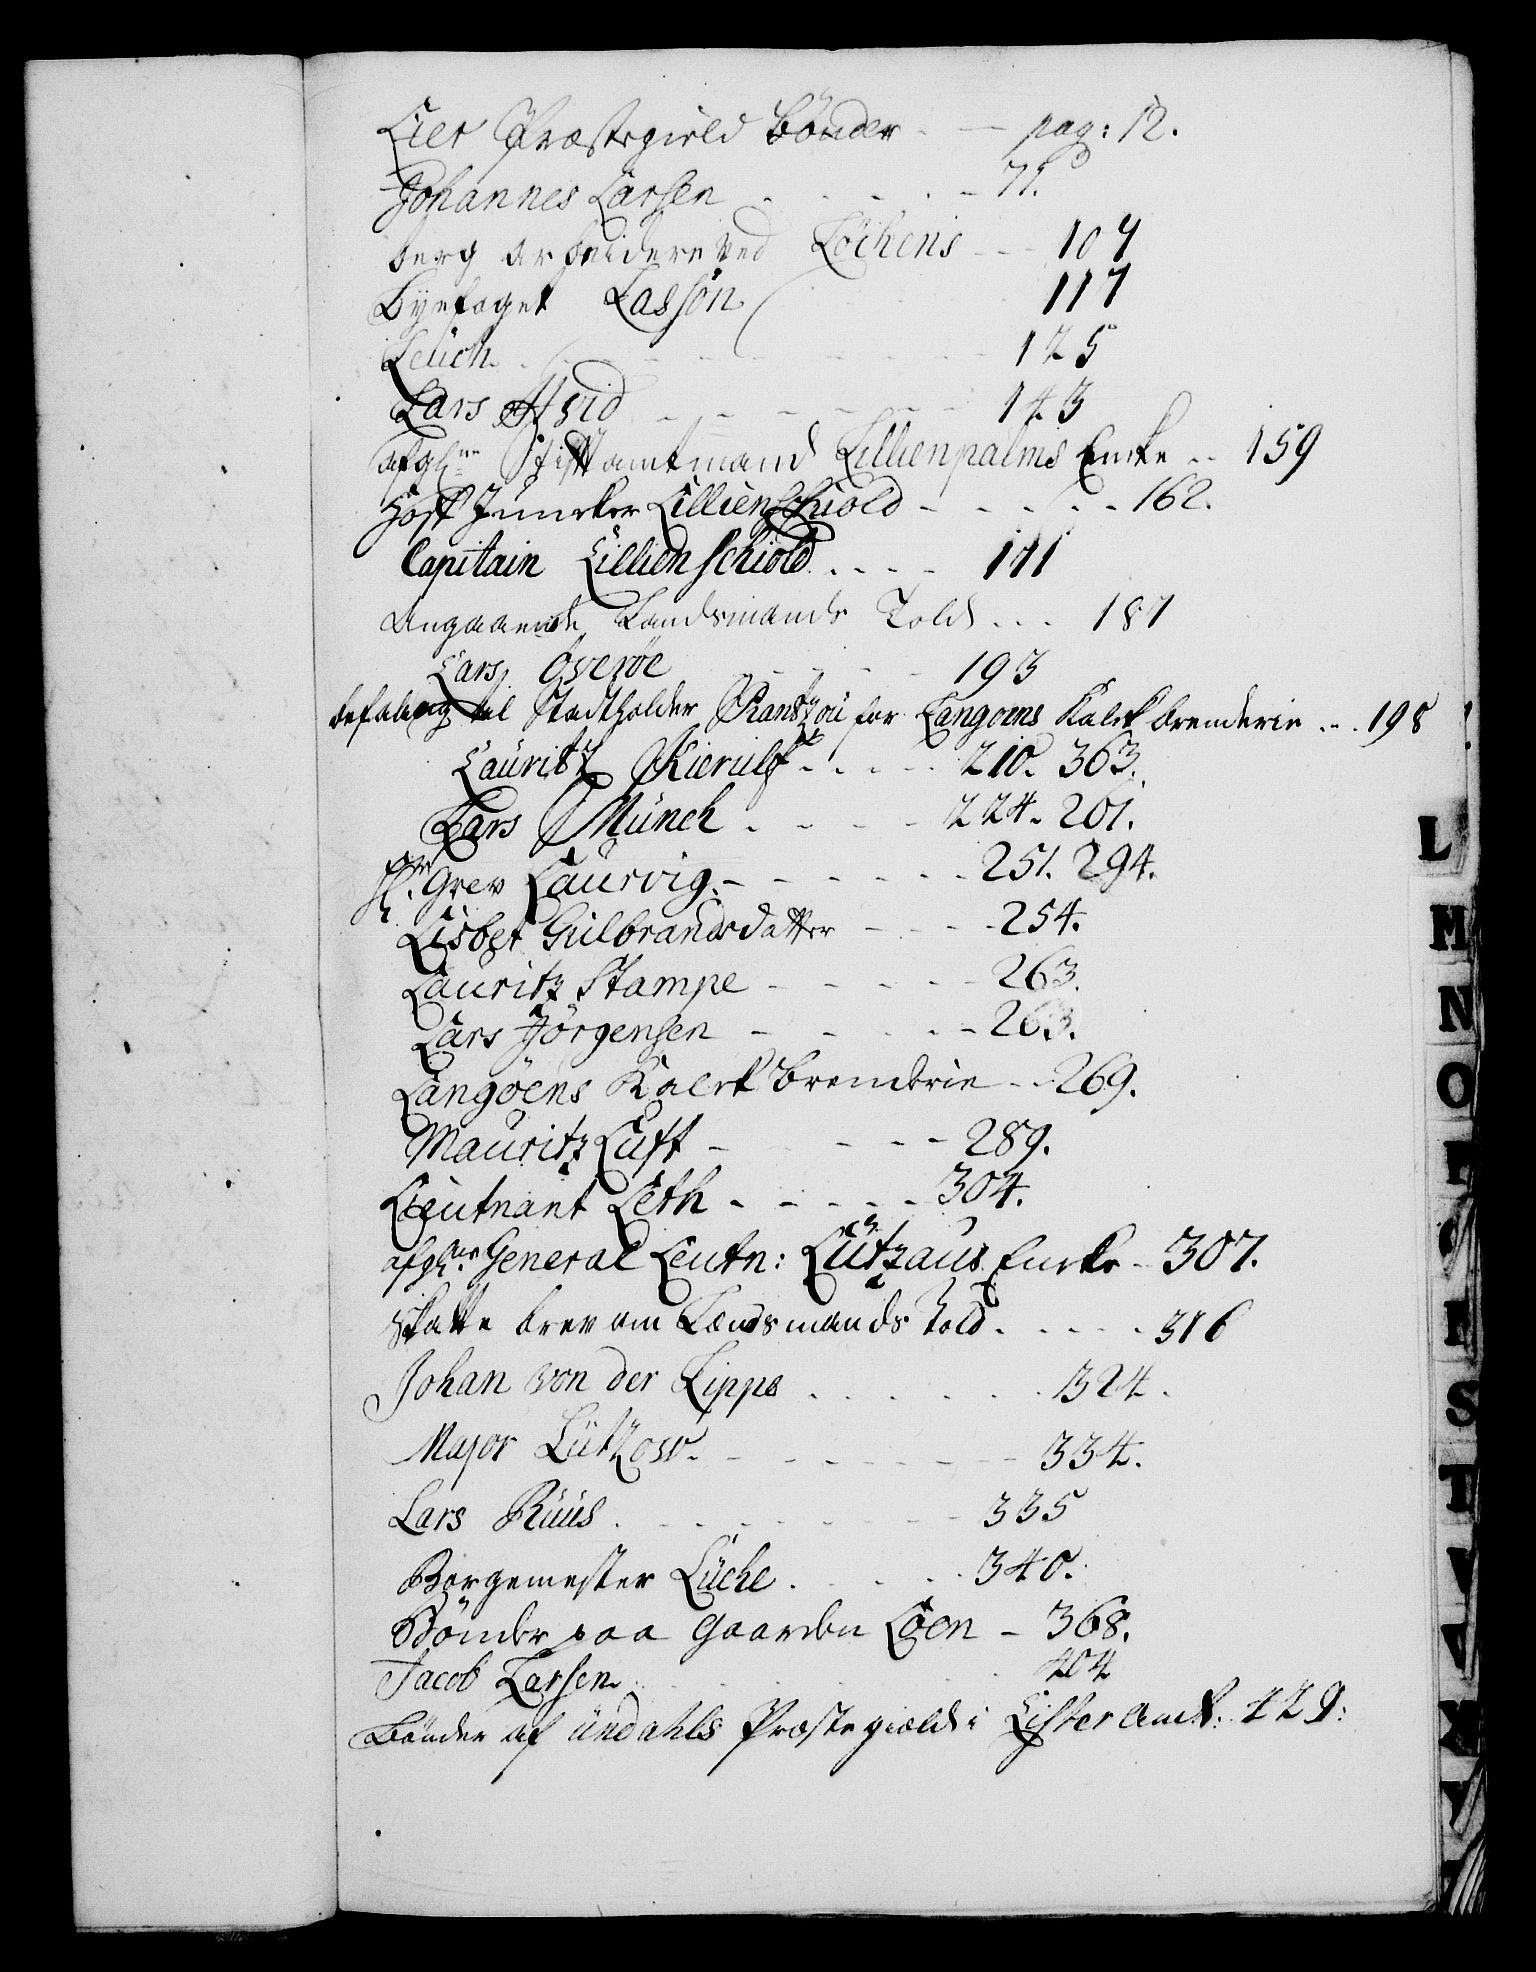 Lier Præstegield bönder - - pag: 12.
Johannes Larsen - - - - 71.
berg arbeidere ved Löchens - - 104
Byefoget Lassön 117
Leüch - - - - 125
Lars Hvid - - - - - 143
afgl: ne Stiftamtmand Lillienpalms Encke - - 159
Hoff Juncker Lillienschiold - - - - - 162.
Capitain Lillienschiold - - - - 171
Angaaende Landsmands Told - - - 187
Lars Overöe - - - 193
befaling til Stadtholder Rantzou for Langöens Kalck brenderie - - 198
Lauritz Kierulf - - - - - 210. 363.
Lars Münch - - - - 224. 261.
Grev Laurvig. - - - - - - 251. 294.
Lisbet Gulbrandsdatter - - - - 254.
Lauritz Stampe - - - - - 263.
Lars Jörgensen - - - - - 263.
Langöens Kalck brenderie - - 269.
Mauritz Luft - - - - - 289.
Lieutnant Leth - - - - - 304.
afgl: ne General Leutn: Lützaus Encke - 307.
Patte brev om Landsmands told - - - - - 316
Johan von der Lippe - - - - - 324.
Major Lützow. - - - - - - - 334.
Lars Rüüs - - - - - - - - 335
Borgemester Lüche - - - - - 340.
Bönder paa Gaarden Loen - 368.
Jacob Larsen - - - - 404
Bönder af Undahls Præstegield i Lister Amt: 429:
L
M
N
O
P
Q
R
S
T
V
X
Y